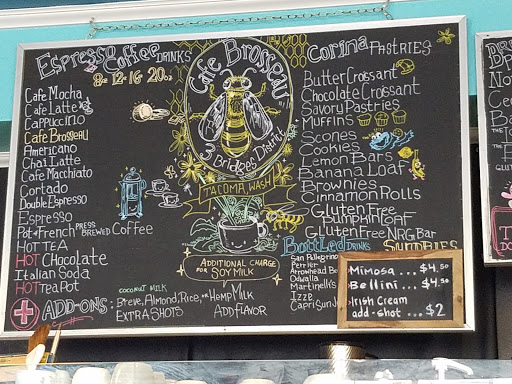 Espresso Coffee DRINKS
8oz 12-16 20oz
Cafe Mocha
Cafe Latte
Cappuccino
Cafe Brosseau
Americano
Chai Latte
Cafe Macchiato
Cortado
Double Espresso
Espresso
Pot of French PRESS BREWED Coffee
HOT TEA
HOT CHocolate
Italian Soda
HOT Tea Pot
ADD-ONS:
COCONUT MILK
Breve, Almond, Rice, or Hemp Milk
EXTRA SHOTS ADD FLAVOR
Cafe Brosseau
3 Bridges District
TACOMA, WASH
ADDITIONAL CHARGE
FOR SOY MILK
Corina PASTRIES
Butter Croissant
Chocolate Croissant
Savory Pastries
Muffins
Scones
Cookies
Lemon Bars
Banana Loaf
Brownies
Cinnamon Rolls
Gluten Free
PUMPKIN LOAF
Gluten Free NRG Bar
Bottled DRINKS
San Pellegrino
Perrier
Arrowhead
Odwalla
Martinelli's
Izze
Capri Sun
SUNDRIES
Mimosa ... $4.50
Bellini .. $4.50
Irish Cream
add-shot ... $2